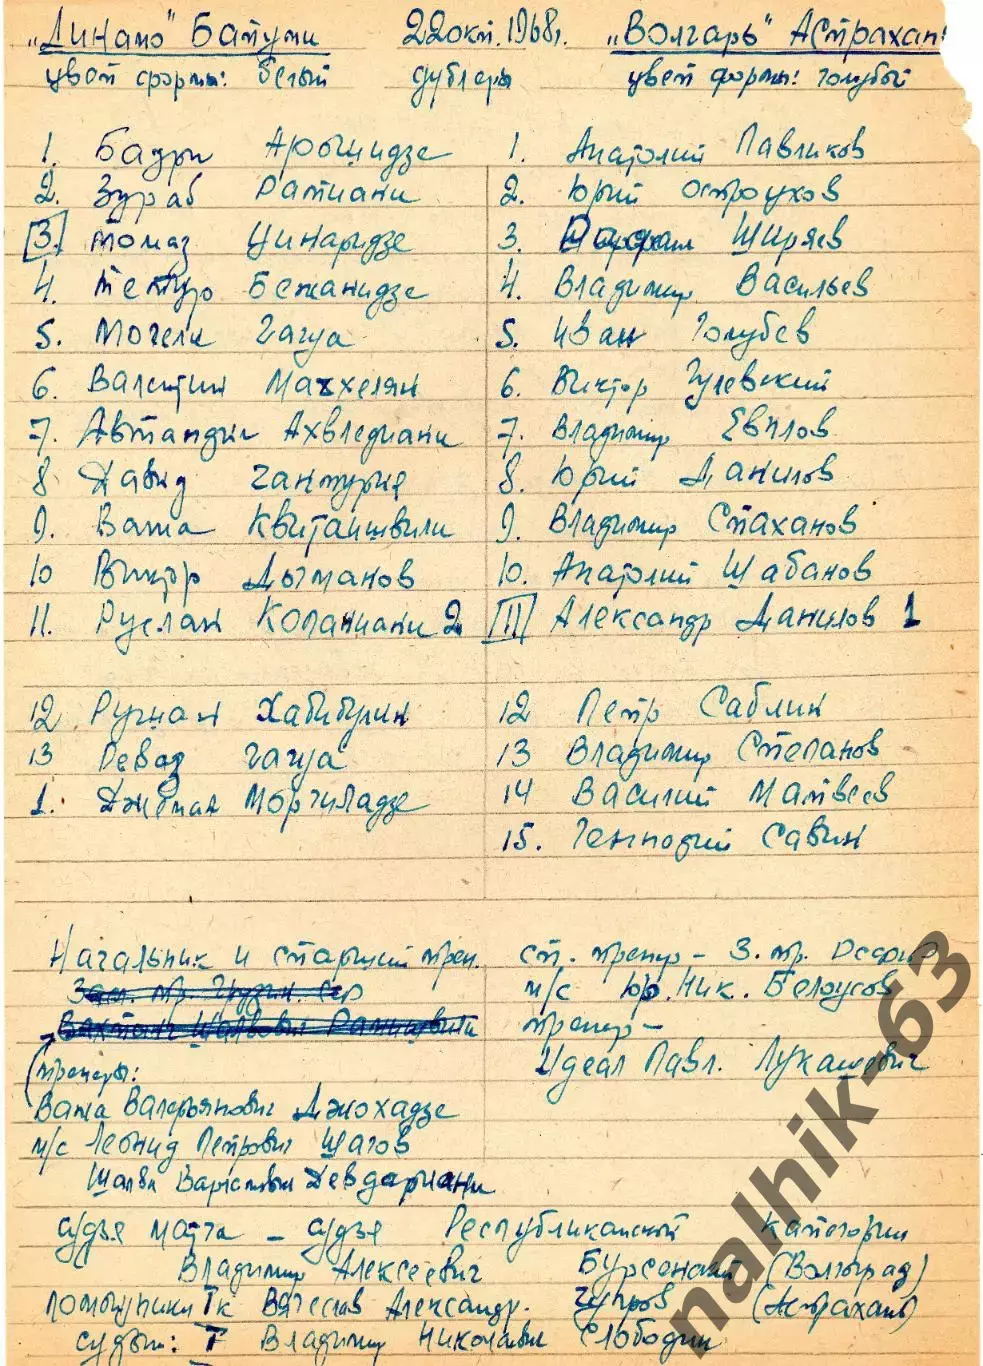 „Динамо" Батуми 22 окт. 1968г. „Волгарь" Астрахань
цвет формы: белый дублеры цвет формы: голубой
1. Бадри 1. Анатолий Павликов
2. Зураб Ратиани 2. Юрий Остроухов
3. Томаз Цинаридзе 3. Ширяев
4. Бежанидзе 4. Владимир Васильев
5. Могели Гагуа 5. Иван Голубев
6. Валентин Махкелян 6. Виктор Гулевский
7. Автандил Ахвледиани 7. Владимир Евплов
8 Давид Гантурия 8. Юрий Данилов
9. Важа Квиташвили 9. Владимир Стаханов
10 Виктор Дыманов 10. Анатолий Шабанов
11. Руслан Копалиани 2 11 Александр Данилов 1
12 Хабибулин 12 Петр Саблин
13 Реваз Гагуа 13 Владимир Степанов
1. Джемал Моргиладзе 14 Василий Матвеев
15. Геннадий Савин
Начальник и старший трен. ст. тренер – З. тр. РСФСР
Засл. тр. Грузин. ССР м/с Юр. Ник. Белоусов
Вахтанг Шалвович Рамишвили тренер –
тренеры: Идеал Павл. Лукашевич
Важа Валерьянович Джохадзе
м/с Леонид Петрович Шагов
Шалва Девдариани
судья матча – судья Республиканской категории
Владимир Алексеевич Бурсенский (Волгоград)
помощники 1к Вячеслав Александр. Чупров (Астрахань)
судьи: 1 Владимир Николаевич Слободин
nalhik-63